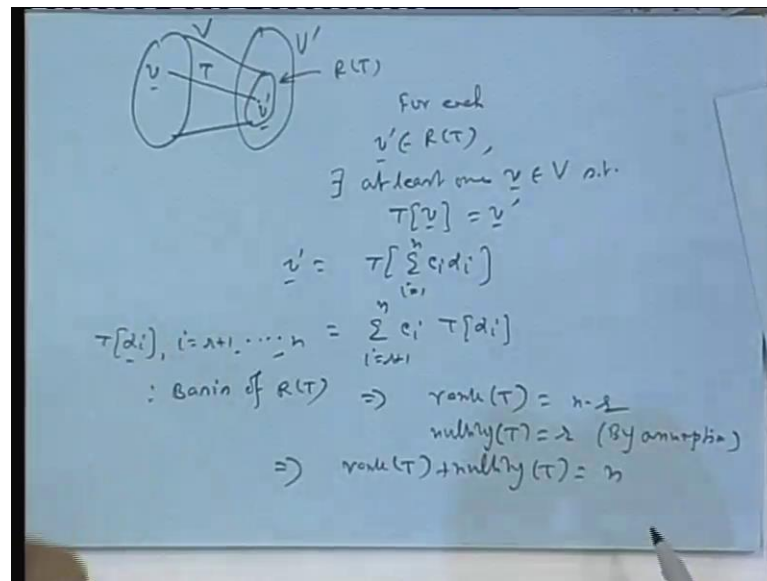 V
V'
v T
R(T)
v'
For each
v' ∈ R(T),
∃ at least one v ∈ V s.t.
T[v] = v'
v' = T[∑ᵢ₌₁ⁿ cᵢαᵢ]
T[αᵢ], i=r+1, ..... n = ∑ᵢ₌ᵣ₊₁ⁿ cᵢ T[αᵢ]
: Basis of R(T) ⇒ rank(T) = n-r
nullity(T) = r (By assumption)
⇒ rank(T)+nullity(T) = n